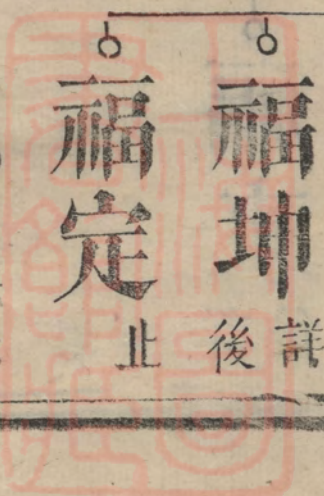 福坤
詳後
福定
止